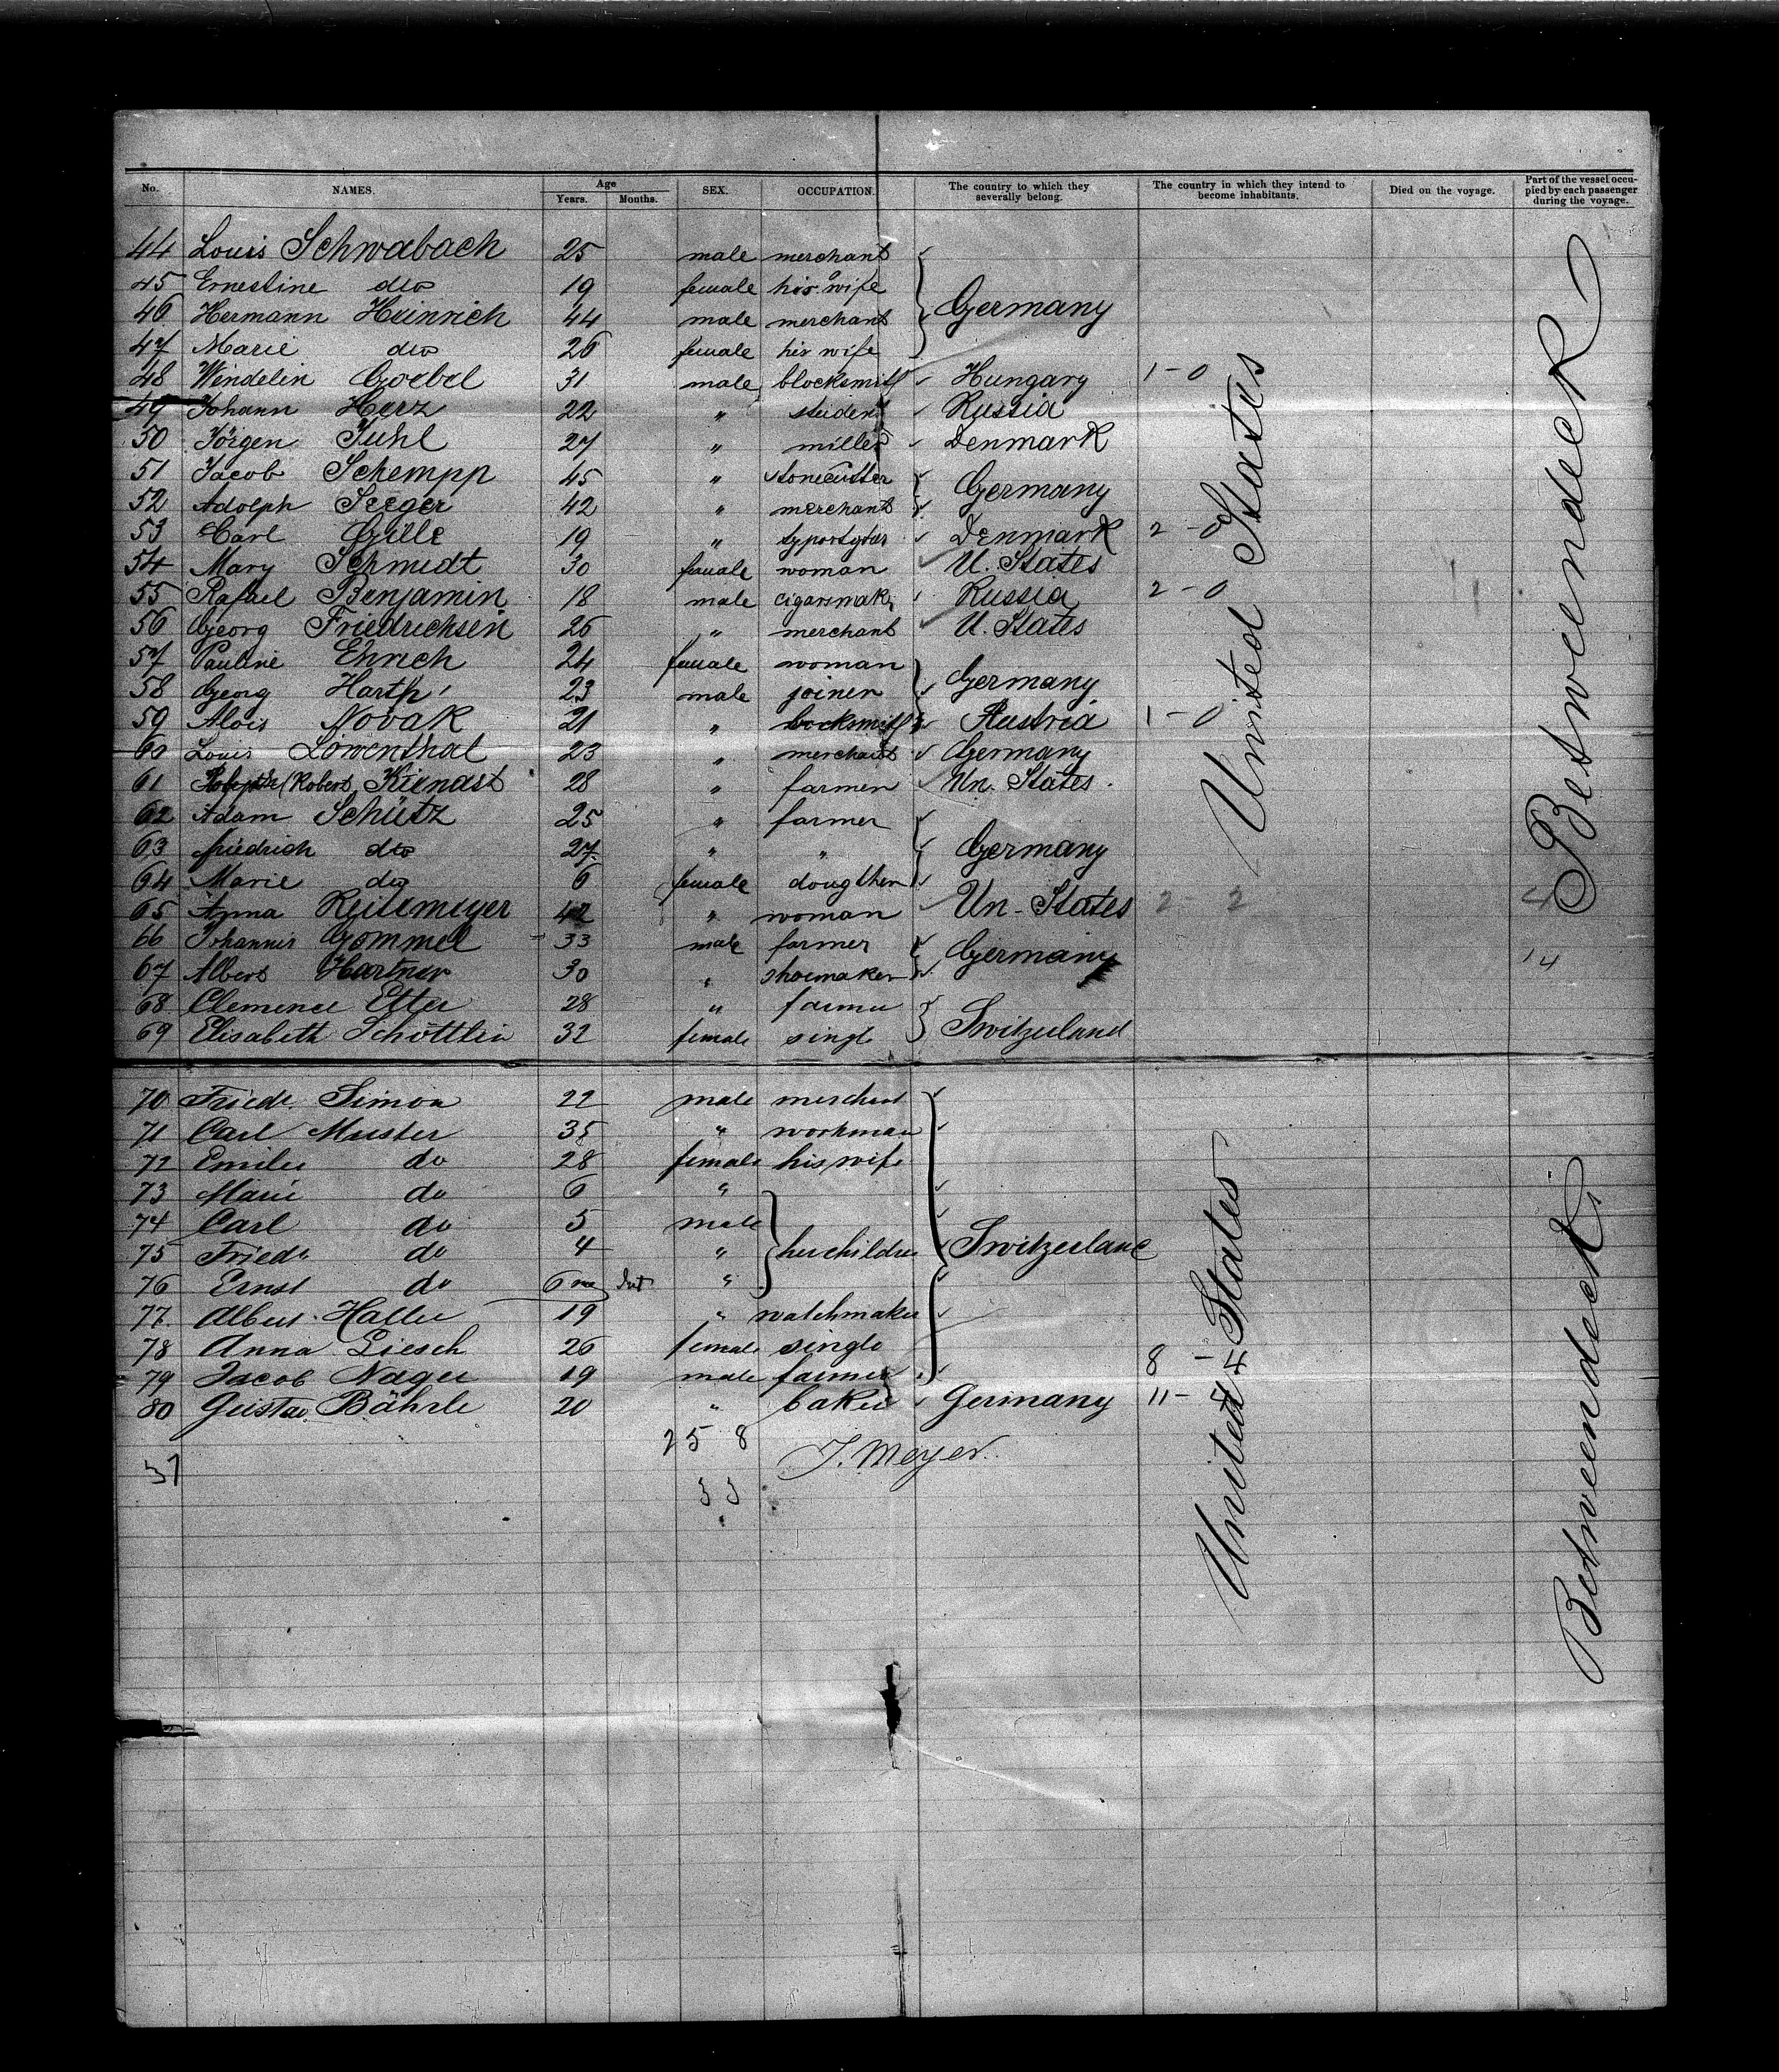 No. NAMES. Age Years. Months. SEX. OCCUPATION. The country to which they severally belong. The country in which they intend to become inhabitants. Died on the voyage. Part of the vessel occupied by each passenger during the voyage.
44 Louis Schwabach 25 male merchant
45 Ernestine dto 19 female his wife
Germany
46 Hermann Heinrich 44 male merchant
47 Marie dto 26 female his wife
48 Windelin Goebel 31 male blocksmith Hungary 1-0
49 Johann Herz 22 " student Russia
50 Jörgen Juhl 27 " miller Denmark
51 Jacob Schempp 45 " stonecutter Germany
52 Adolph Seeger 42 " merchant
53 Carl Gille 19 " Denmark 2-0
54 Mary Schmidt 30 female woman U. States
55 Rafael Benjamin 18 male cigarsmak Russia 2-0
56 Georg Friedrichsen 26 " merchant U. States
57 Pauline Ehrich 24 female woman
Germany
58 Georg Harth 23 male joiner
59 Alois Novak 21 " locksmith Austria 1-0
60 Louis Löwenthal 23 " merchant Germany
61 (Robert) Kienast 28 " farmer Un. States.
62 Adam Schütz 25 " farmer
63 friedrich dto 27 " " Germany
64 Marie dto 6 female dougther
65 Anna Reitemeyer 42 " woman Un-States 2-2 4
66 Johannis Gommel 33 male farmer Germany
67 Albert Hartner 30 " shoemaker 14
68 Clemence Etter 28 " farmer
69 Elisabeth Schöttlin 32 female singl Switzerland
United States
Betweendeck
70 Friedr. Simon 22 male merchant
71 Carl Muster 35 " workman
72 Emilie do 28 female his wife
73 Marie do 6 "
74 Carl do 5 male
75 Friedr do 4 " her children Switzerland
76 Ernst do 6 m Inf "
77. Albert Haller 19 " watchmaker
78 Anna Liesch 26 female single 8-4
79 Jacob Nager 19 male farmer
80 Gustav Bährle 20 " baker Germany 11-
United States
Betweendeck
37 25 8 J. Meyer.
33